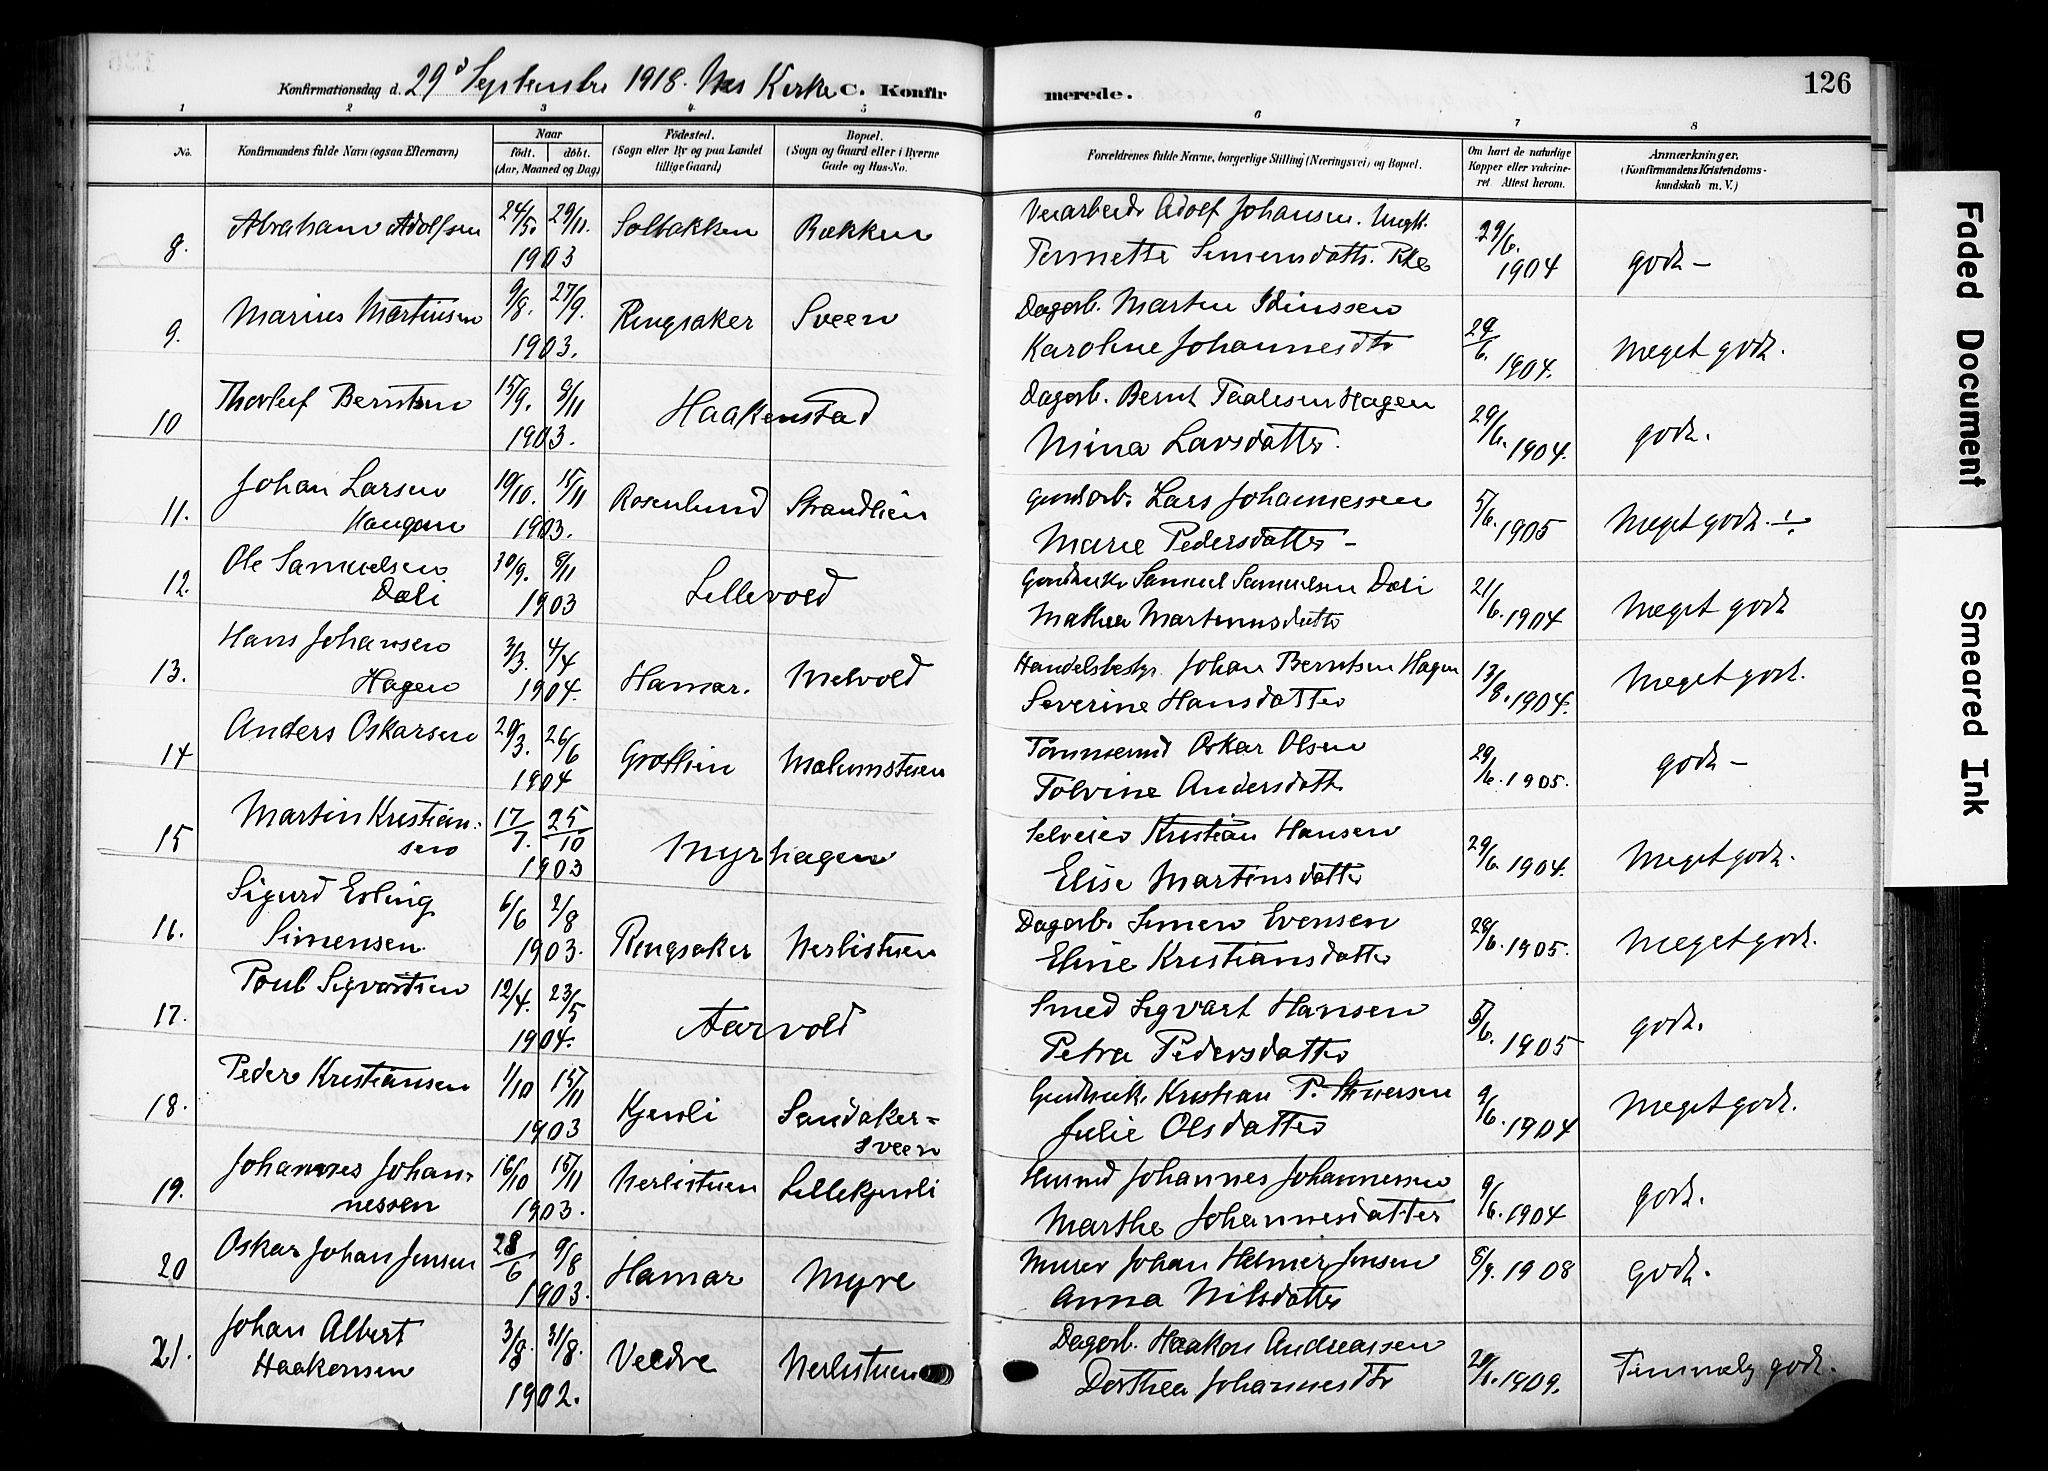 126
Konfirmationsdag d. 29d Septembr 1918. Nes Kirke C. Konfir merede.
1 2 3 4 5 6 7 8
No. Konfirmandens fulde Navn (ogsaa Efternavn) Naar födt. döbt. (Aar, Maaned og Dag) Födested. (Sogn eller By og paa Landet tillige Gaard) Bopæl. (Sogn og Gaard eller i Byerne Gade og Hus-No.
Forældrenes fulde Navne, borgerlige Stilling (Næringsvei) og Bopæl. Om havt de naturlige Kopper eller vakcineret Attest herom. Anmærkninger. (Konfirmandens Kristendomskundskab m. V.)
8. Abraham Adolfsen 24/5. 29/11. 1903 Solbakken Bækken Adolf Johansen. 29/6. 1904 godt –
9. Marius Martinsen 9/8. 27/9. 1903. Ringsaker Sveen Dagarb. Martin
Karoline Johannesdtr 29/6. 1904. Meget godt.
10 Thorleif Berntsen 15/9. 8/11 1903. Haakenstad Dagarb. Bernt Paalesen Hagen
Mina Larsdatter. 29/6. 1904. godt.
11. Johan Larsen
Haugen 19/10. 15/11 1903. Rosenlund Strandlien Gaardarb. Lars Johannessen
Marie Pedersdatter – 5/6. 1905 Meget godt. !
12. Ole Samuelsen
Dæli 30/9. 8/11 1903 Lillevold Samuel Samuelsen Dæli
Mathea Martinusdatter 21/6. 1904 Meget godt
13. Hans Johansen
Hagen 3/3. 4/4 1904. Hamar. Melvold Handelsbestyr. Johan Berntsen Hagen
Severine Hansdatter 13/8. 1904. Meget godt.
14 Anders Oskarsen 29/3. 26/6 1904 Grøtlien Malumstuen Tömmermd Oskar Olsen
Tolvine Andersdatter 29/6. 1905. godt –
15 Martin Kristian-
sen 17/7. 25/10 1903 Myrhagen Selveier Kristian Hansen
Elise Martinsdatter 29/6. 1904. Meget godt.
16. Sigurd Erling
Simensen 6/6 2/8 1903. Ringsaker Nerlistuen Dagarb. Simen Evensen
Eline Kristiansdatter 29/6. 1905. Meget godt.
17. Poul Sigvartsen 12/4. 23/5 1904. Aarvold Smed Sigvart Hansen
Petra Pedersdatter 5/6. 1905 godt.
18. Peder Kristiansen 1/10 15/11 1903 Kjenli Sandaker-
sveen Kristian P.
Julie Olsdatter 9/6. 1904 Meget godt.
19. Johannes Johan-
nessen 16/10 15/11 1903. Nerlistuen Lillekjenli Husmd Johannes Johannessen
Marthe Johannesdatter 9/6. 1904 godt.
20 Oskar Johan Jensen 28/6 9/8 1903. Hamar Myre Murer Johan Helmer Jensen
Anna Nilsdatter 8/9. 1908 Godt.
21. Johan Albert
Haakensen 3/8. 31/8. 1902. Veldre Nerlistuen Dagarb. Haakon Andreassen
Dorthea Johannesdtr 20/1. 1909. Temmelig godt.
Faded Document
Smeared Ink